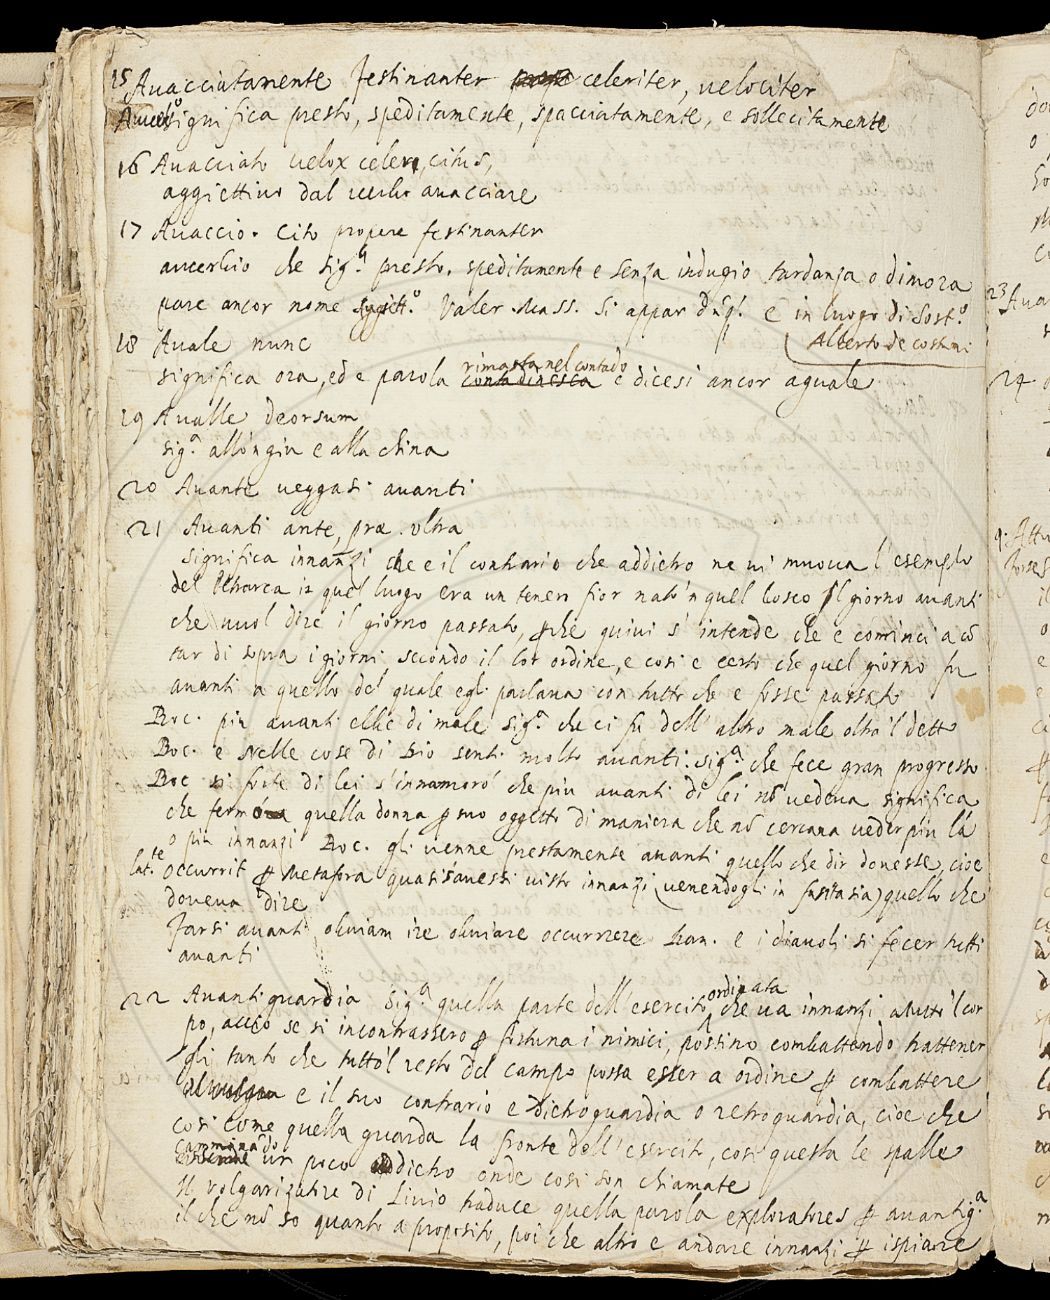 15 Avacciatamente festinanter celeriter, velociter
Auuer.º significa presto, speditamente, spacciatamente, e sollecitamente
16 Avacciato velox celer, citus,
aggiettivo dal verbo avacciare
17 Avaccio. cito propere festinanter
auverbio che sig.ª presto, speditamente e senza indugio tardanza o dimora
pare ancor nome Valer Mass. si appar e in luogo di sost.º
Alberto de costumi
18 Avale nunc
significa ora, ed e parola contadinesca rimasta nel contado e dicesi ancor aguale
19 Avalle deorsum
sig.ª all'ongiu e alla china
20 Avante veggasi avanti
21 Avanti ante, præ. vltra
significa innanzi che e il contrario che addietro ne vi muova l'esempio
del Petrarca in quel luogo era un tenero fior nato 'n quel bosco Il giorno avanti
che vuol dire il giorno passato, ꝑche quivi s'intende che e cominci a cō
tar di sopra i giorni, secondo il lor ordine, e cosi e certo che quel giorno fu
avanti a quello del quale egli parlava con tutto che e fosse passato
Boc. piu avanti ebbe di male sig.ª che ci fu dell'altro male oltra 'l detto
Boc. e Nelle cose di Dio senti molto avanti. sig.ª che fece gran progresso
Boc si forte di lei s'innamorò che piu avanti di lei nō vedeva significa
che fermava quella donna ꝑ suo oggetto di maniera che nō cercava veder piu là
o piu innanzi Boc. gli venne prestamente avanti quello che dir dovesse, cioe
lat.te occurrit ꝑ Metafora quasi s'avessi visto innanzi (venendogli in fantasia) quello che
doveva dire
Farsi avanti obviam ire obviare occurrere Dan. e i diavoli si fecer tutti
avanti
22 Avantiguardia sig.ª quella parte dell'esercito ordinata che va innanzi a tutto 'l cor
po, acciò se si incontrassero ꝑ fortuna i nimici, possino combattendo trattener
gli tanto che tutto 'l resto del campo possa esser a ordine ꝑ combattere
e il suo contrario e Dietroguardia o retroguardia, cioe che
cosi come quella guarda la fronte dell'esercito, cosi questa le spalle
camminādo un poco addietro onde cosi son chiamate
Il volgarizatore di Livio traduce quella parola exploratores ꝑ avantig.ª
il che nō so quanto a proposito, poi che altro e andare innanzi ꝑ ispiare